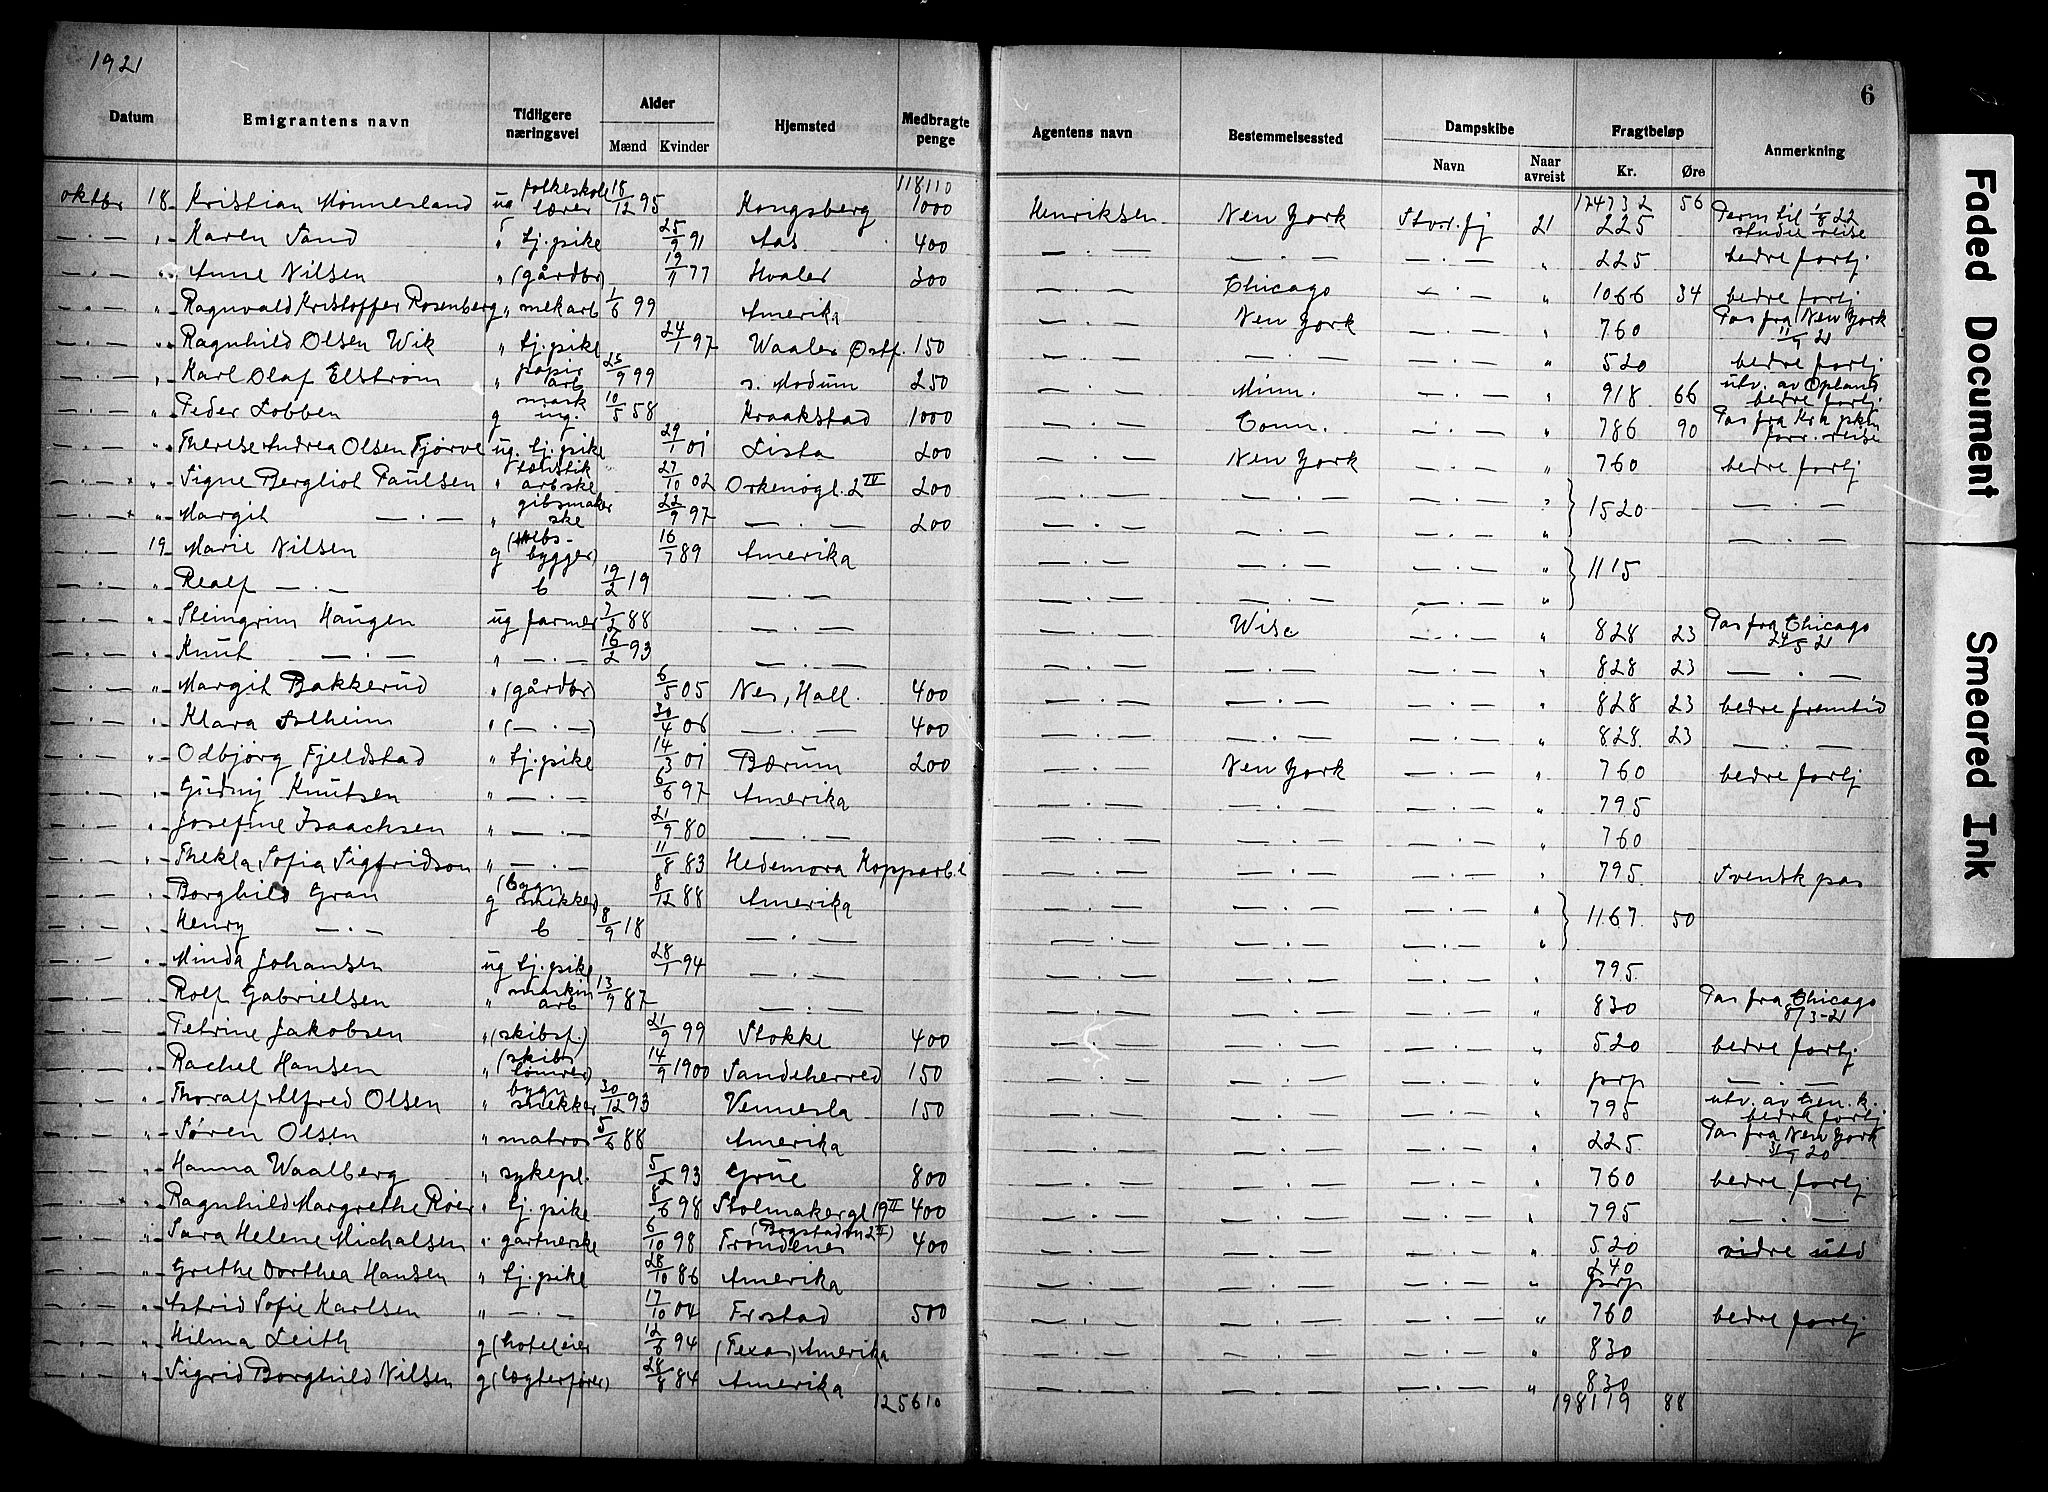 1921
6
Datum | Emigrantens navn | Tidligere næringsvei | Alder Mænd Kvinder | Hjemsted | Medbragte penge | Agentens navn | Bestemmelsessted | Dampskibe Navn Naar avreist | Fragtbeløp Kr. Øre | Anmerkning
118110 | 174732 56
oktbr 18 Kristian Mønnesland ug folkeskole lærer 18/12 95 Kongsberg 1000 Henriksen New York Stav.fj 21 225 Perm til 1/8 22 studie reise
— . — " Karen Sand " tj.pike 25/9 91 Aas 400 — . — — . — " 225 bedre forhj
— . — " Anne Nilsen " (gårdbr) 19/11 77 Hvaler 300 — . — Chicago — . — " 1066 34 bedre forhj
— . — " Ragnvald Kristoffer Rosenberg " mek arb 1/6 99 Amerika — . — New York — . — " 760 Pas fra New York 11/9 21
— . — " Ragnhild Olsen Wik " tj.pike 24/1 97 Waaler Østf. 150 — . — — . — — . — " 520 bedre forhj
— . — " Karl Olaf Elstrøm " papir arb 25/9 99 s. Modum 250 — . — Minn. — . — " 918 66 utv. av Opland bedre forhj.
— . — " Peder Lobben g 10/5 58 Kraakstad 1000 — . — Conn. — . — " 786 90 Pas fra Kra pkm forr. reise
— . — " Therese Andrea Olsen Fjørve ug. tj.pike 29/1 01 Lista 200 — . — New York — . — " 760 bedre forhj
— . — " Signe Bergliot Paulsen " arbske 27/10 02 Orknøgt. 2 IV 200 — . — — . — — . — " 1520 — . —
— . — " Margit — . — " gibsmaker ske 22/9 97 — . — 200 — . — — . — — . — " — . —
— . — 19 Marie Nilsen g (bygger) 16/7 89 Amerika — . — — . — — . — " 1115
— . — " Realf — . — b 19/2 19 — . — — . — — . — — . — "
— . — " Steingrim Haugen ug farmer 7/2 88 — . — — . — Wisc — . — " 828 23 Pas fra Chicago 24/5 21
— . — " Knut — . — " — . — 16/2 93 — . — — . — — . — — . — " 828 23 — . —
— . — " Margit Bakkerud " (gårdbr) 6/5 05 Nes, Hall. 400 — . — — . — — . — " 828 23 bedre fremtid
— . — " Klara Solheim " (— . —) 30/4 06 — . — 400 — . — — . — — . — " 828. 23 — . —
— . — " Odbjørg Fjeldstad " tj.pike 14/3 01 Bærum 200 — . — New York — . — " 760 bedre forhj
— . — " Gudny Knutsen " — . — 6/6 97 Amerika — . — — . — — . — " 795
— . — " Josefine Isaachsen " — . — 21/9 80 — . — — . — — . — — . — " 760
— . — " Thekla Sofia Sigfridson " — . — 11/8 83 Hedemora Kopparb.l — . — — . — — . — " 795. Svensk pas
— . — " Borghild Gran g (bygn snikker) 8/12 88 Amerika — . — — . — — . — " 1167. 50
— . — " Henry — . — b 8/9 18 — . — — . — — . — — . — "
— . — " Minda Johansen ug tj.pike 28/1 94 — . — — . — — . — — . — " 795.
— . — " Rolf Gabrielsen " maskin arb 13/9 87 — . — — . — — . — — . — " 830 Pas fra Chicago 8/3-21
— . — " Petrine Jakobsen " (skibsf.) 21/9 99 Stokke 400 — . — — . — — . — " 520 bedre forhj
— . — " Rachel Hansen " (skibs tømrer) 14/9 1900 Sandeherred 150 — . — — . — — . — " prp — . —
— . — " Thoralf Alfred Olsen " bygn snekker 30/12 93 Vennesla 150 — . — — . — — . — " 795 utv. av Gen.k. bedre forhj
— . — " Søren Olsen " matros 5/6 88 Amerika — . — — . — — . — " 225. Pas fra New York 20
— . — " Hanna Waalberg " sykepl. 5/2 93 Grue 800 — . — — . — — . — " 760 bedre forhj
— . — " Ragnhild Margrethe Røer " tj.pike 8/6 98 Stolmakergt 19 II 400 — . — — . — — . — " 795 — . —
— . — " Sara Helene Michalsen " gartnerske 6/10 98 Trondenes (Bogstadvn 2 II) 400 — . — — . — — . — " 520 vidre utd
— . — " Grethe Dorthea Hansen " tj.pike 28/10 86 Amerika — . — — . — — . — " 240 prp
— . — " Astrid Sofie Karlsen " — . — 17/10 04 Frstad 500 — . — — . — — . — " 760 bedre forhj
— . — " Hilma Leith g (hoteleier 12/6 94 (Texas) Amerika — . — — . — — . — " 830
— . — " Sigrid Borghild Nilsen g (lægterfører) 28/8 84 Amerika — . — — . — — . — " 830
125610 | 198119 88
Faded Document
Smeared Ink